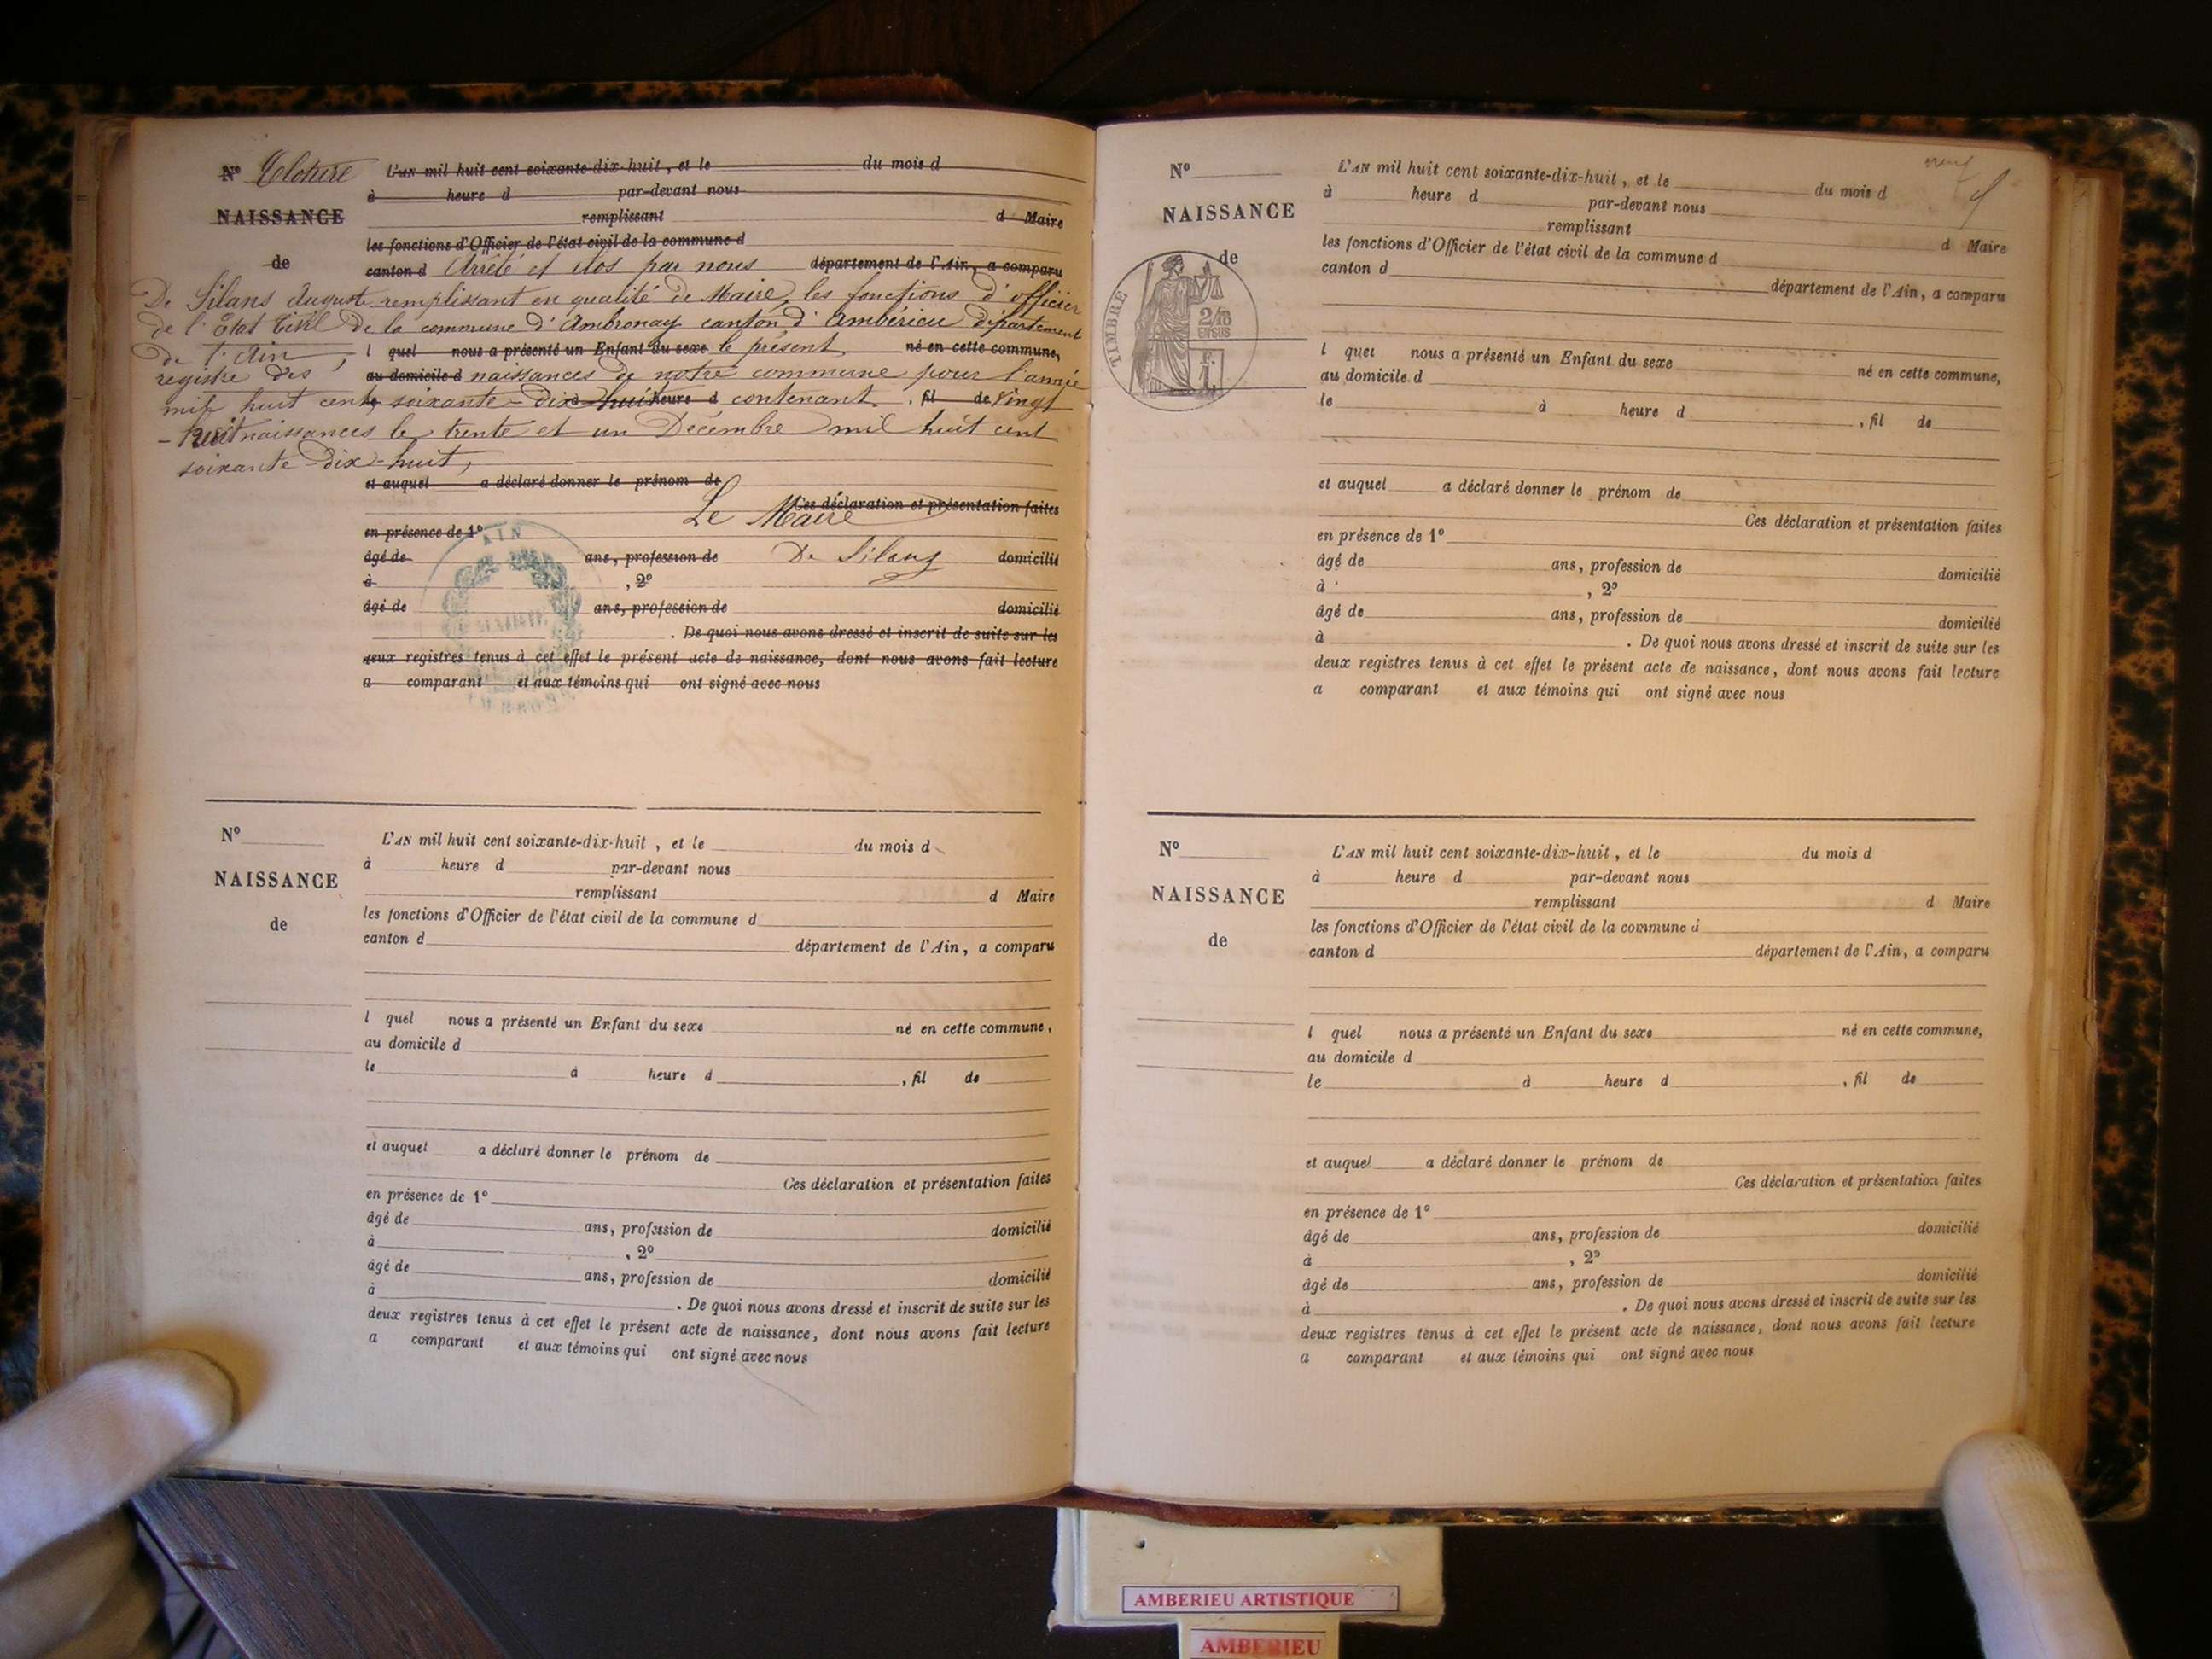 N° Cloture L'AN mil huit cent soixante-dix-huit, et le du mois d
à heure d par-devant nous
NAISSANCE remplissant d Maire
les fonctions d'Officier de l'état civil de la commune d
de canton d Arrêté et clos par nous département de l'Ain, a comparu
De Silans Auguste remplissant en qualité de Maire, les fonctions d'officier
de l'Etat Civil de la commune d'Ambronay canton d'Ambérieu département
de l'Ain, l quel nous a présenté un Enfant du sexe le présent né en cette commune,
registre des au domicile d naissances de notre commune pour l'année
mil huit cent le soixante-dix-huit à heure d contenant , fil de vingt
-huit naissances le trente et un Décembre mil huit cent
soixante dix-huit,
et auquel a déclaré donner le prénom de
Ces déclaration et présentation faites
Le Maire
en présence de 1°
AIN
âgé de ans, profession de De Silans domicilié
à , 2°
âgé de ans, profession de domicilié
MAIRIE
. De quoi nous avons dressé et inscrit de suite sur les
deux registres tenus à cet effet le présent acte de naissance, dont nous avons fait lecture
a comparant et aux témoins qui ont signé avec nous
N° L'AN mil huit cent soixante-dix-huit, et le du mois d
à heure d par-devant nous
NAISSANCE remplissant d Maire
les fonctions d'Officier de l'état civil de la commune d
de canton d département de l'Ain, a comparu
l quel nous a présenté un Enfant du sexe né en cette commune,
au domicile d
le à heure d , fil de
et auquel a déclaré donner le prénom de
Ces déclaration et présentation faites
en présence de 1°
âgé de ans, profession de domicilié
à , 2°
âgé de ans, profession de domicilié
à . De quoi nous avons dressé et inscrit de suite sur les
deux registres tenus à cet effet le présent acte de naissance, dont nous avons fait lecture
a comparant et aux témoins qui ont signé avec nous
neuf
N° L'AN mil huit cent soixante-dix-huit, et le du mois d
à heure d par-devant nous
NAISSANCE remplissant d Maire
les fonctions d'Officier de l'état civil de la commune d
de canton d département de l'Ain, a comparu
TIMBRE
2/10
EN SUS
l quel nous a présenté un Enfant du sexe né en cette commune,
au domicile d
le à heure d , fil de
et auquel a déclaré donner le prénom de
Ces déclaration et présentation faites
en présence de 1°
âgé de ans, profession de domicilié
à , 2°
âgé de ans, profession de domicilié
à . De quoi nous avons dressé et inscrit de suite sur les
deux registres tenus à cet effet le présent acte de naissance, dont nous avons fait lecture
a comparant et aux témoins qui ont signé avec nous
N° L'AN mil huit cent soixante-dix-huit, et le du mois d
à heure d par-devant nous
NAISSANCE remplissant d Maire
les fonctions d'Officier de l'état civil de la commune d
de canton d département de l'Ain, a comparu
l quel nous a présenté un Enfant du sexe né en cette commune,
au domicile d
le à heure d , fil de
et auquel a déclaré donner le prénom de
Ces déclaration et présentation faites
en présence de 1°
âgé de ans, profession de domicilié
à , 2°
âgé de ans, profession de domicilié
à . De quoi nous avons dressé et inscrit de suite sur les
deux registres tenus à cet effet le présent acte de naissance, dont nous avons fait lecture
a comparant et aux témoins qui ont signé avec nous
AMBERIEU ARTISTIQUE
AMBERIEU